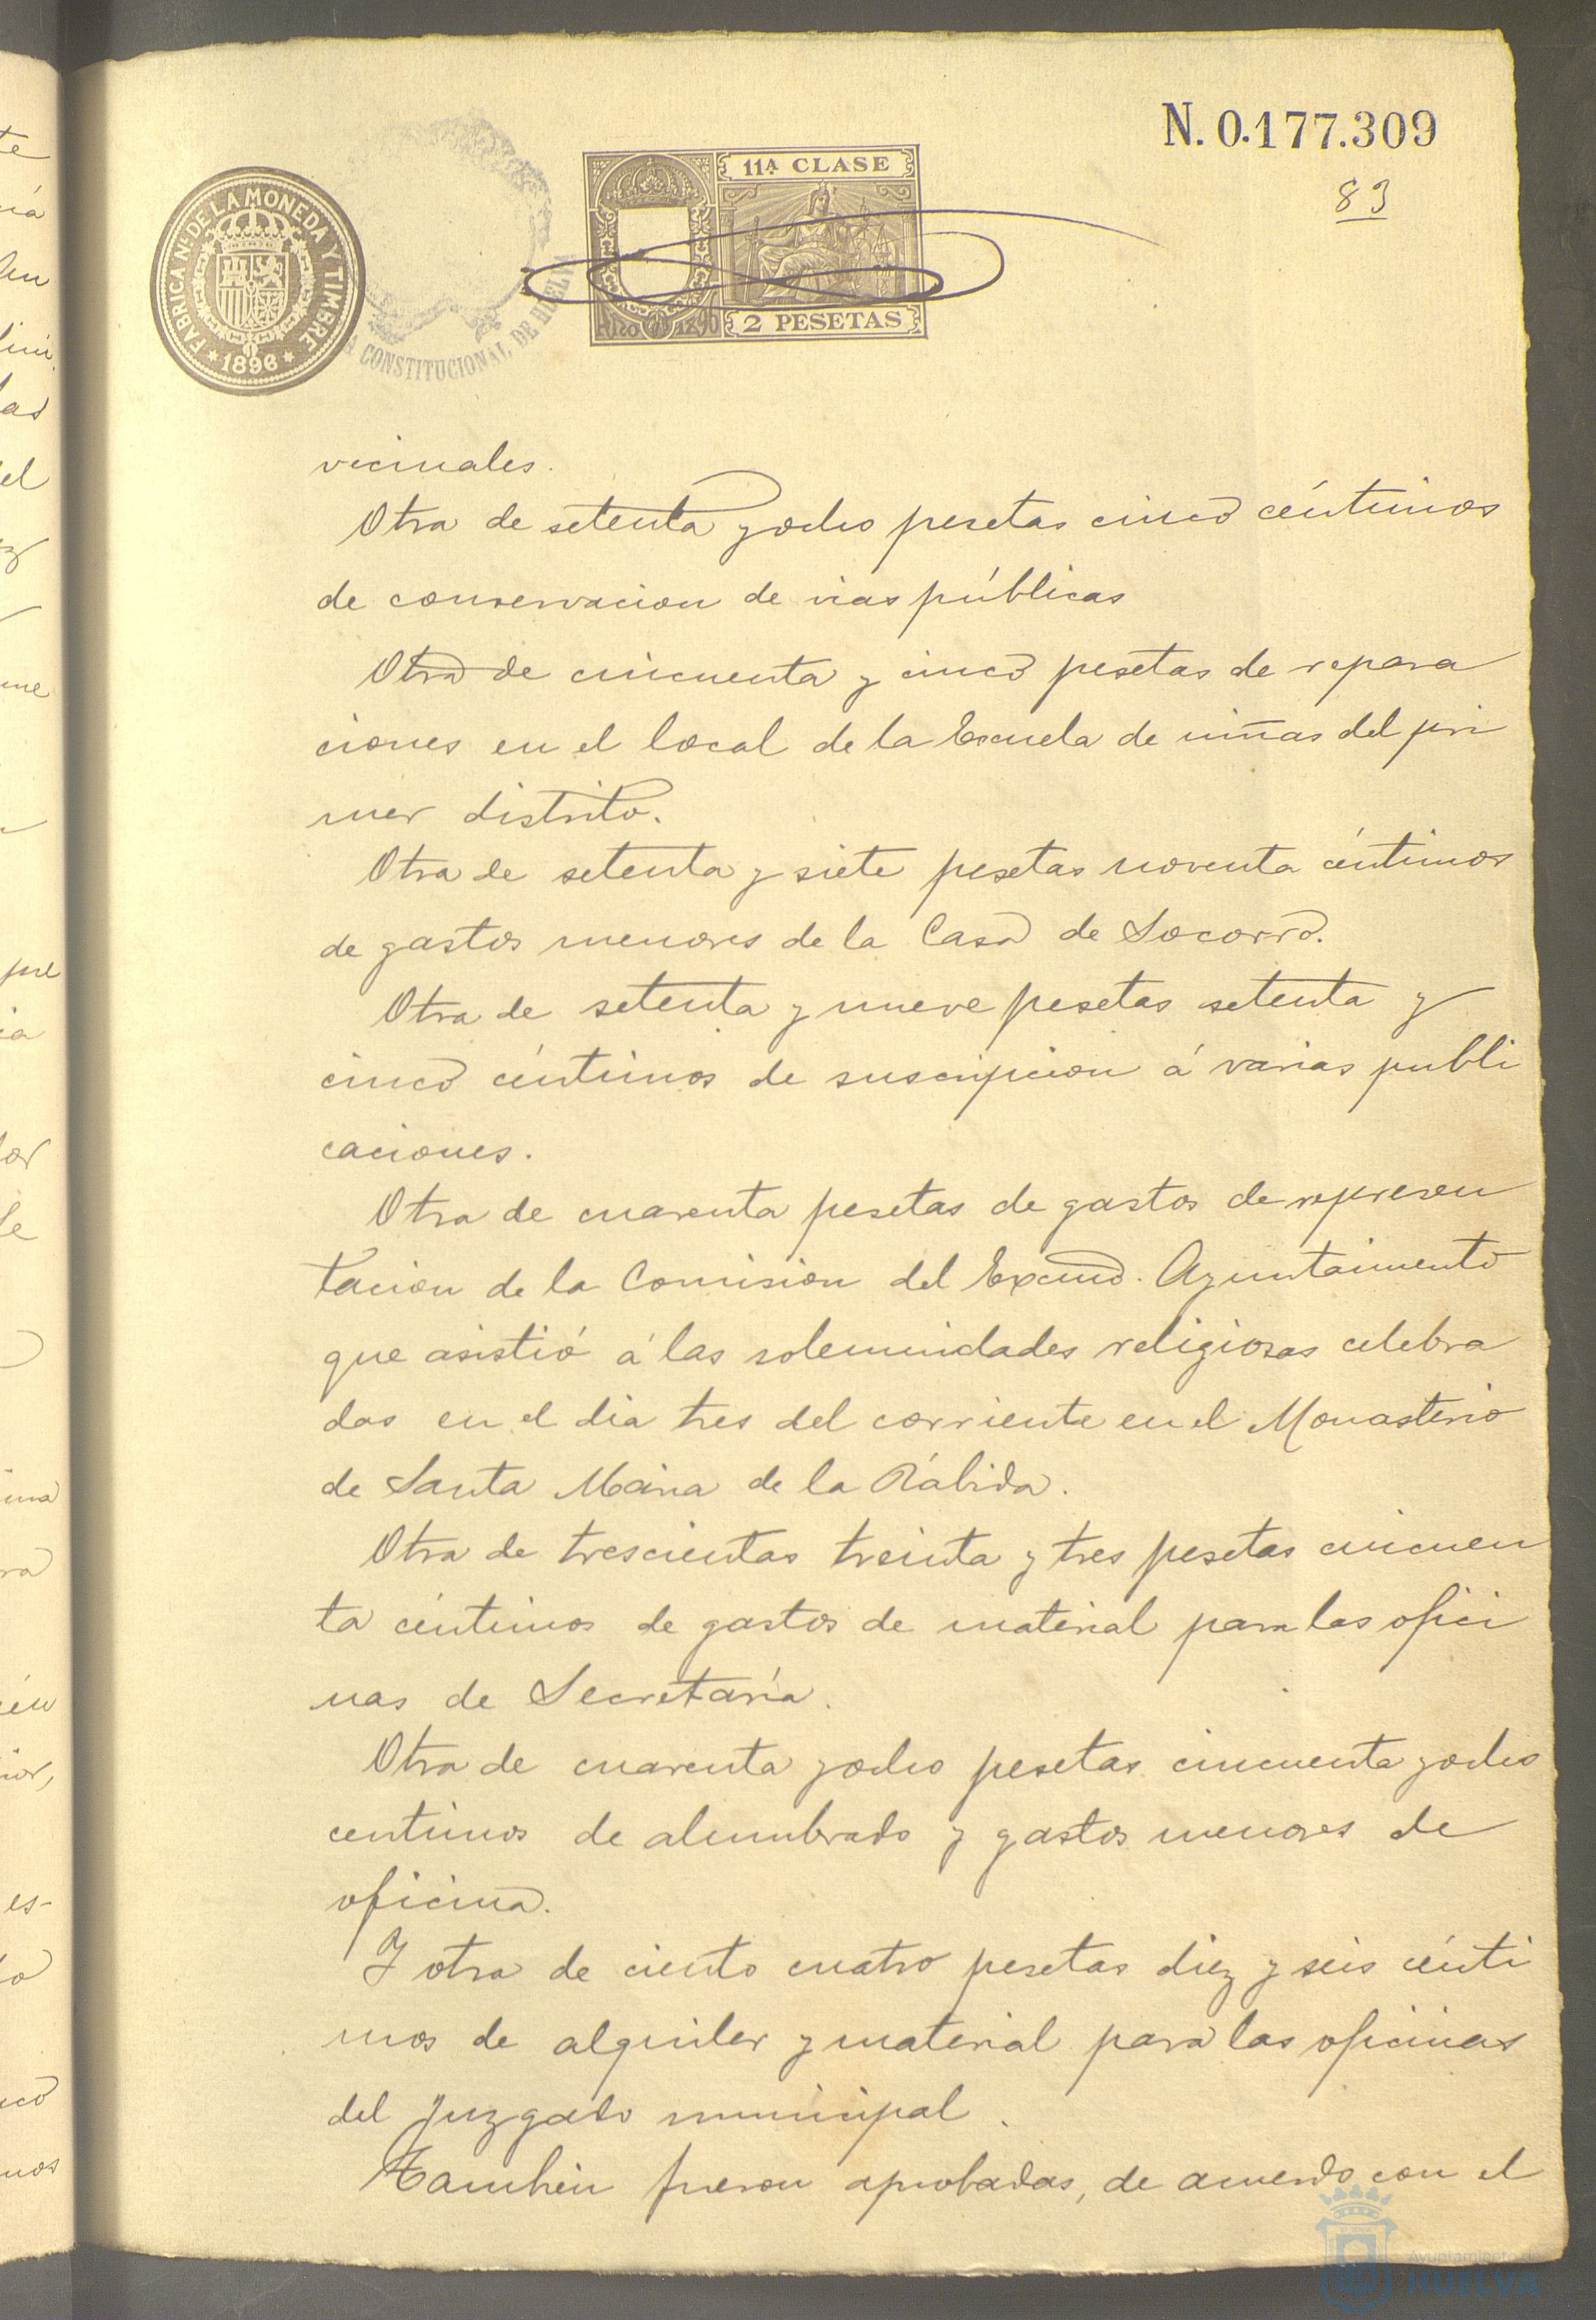 N. 0.177.309
83
FABRICA Nal DE LA MONEDA Y TIMBRE
* 1896 *
CONSTITUCIONAL DE HUELVA
11A CLASE
AÑO 1896
2 PESETAS
vecinales.
Otra de setenta y ocho pesetas cinco céntimos
de conservacion de vias públicas
Otra de cincuenta y cinco pesetas de repara
ciones en el local de la Escuela de niñas del pri
mer distrito.
Otra de setenta y siete pesetas noventa céntimos
de gastos menores de la Casa de Socorro.
Otra de setenta y nueve pesetas setenta y
cinco céntimos de suscripcion á varias publi
caciones.
Otra de cuarenta pesetas de gastos de represen
tacion de la Comision del Excmo. Ayuntaimento
que asistió á las solemnidades religiosas celebra
das en el dia tres del corriente en el Monasterio
de Santa Maria de la Rábida.
Otra de trescientas treinta y tres pesetas cincuen
ta céntimos de gastos de material para las ofici
nas de Secretaría.
Otra de cuarenta y ocho pesetas cincuenta y ocho
centimos de alumbrado y gastos menores de
oficina.
Y otra de ciento cuatro pesetas diez y seis cénti
mos de alquiler y material para las oficinas
del Juzgado municipal.
Tambien fueron aprobadas, de acuerdo con el
Ayuntamiento
HUELVA